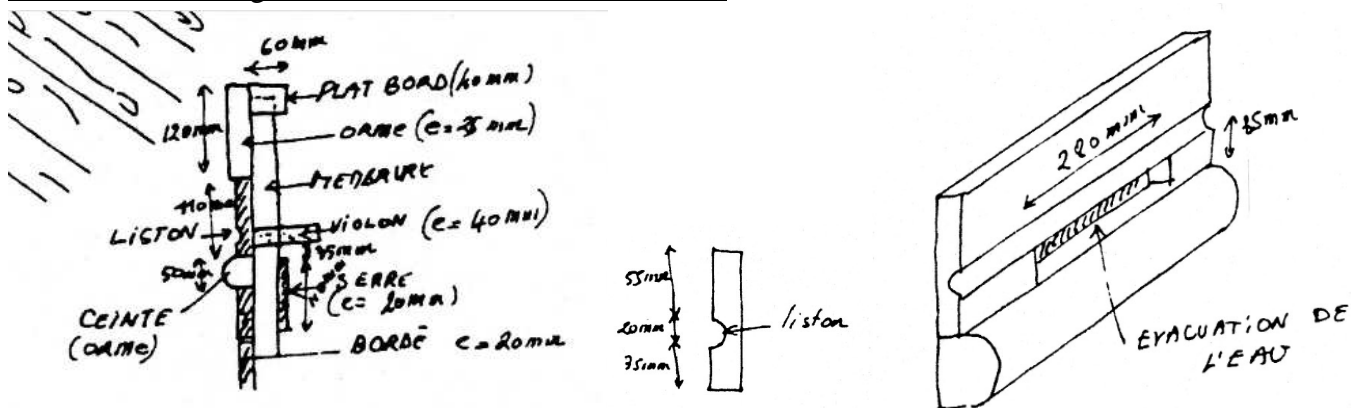 60mm
PLAT BORD (40mm)
120mm
ORME (e=25mm)
MEMBRURE
110mm
VIOLON (e=40mm)
LISTON
35mm
50mm
SERRE
(e=20mm)
CEINTE
(ORME)
BORDÉ e=20mm
55mm
20mm
liston
35mm
280mm
35mm
EVACUATION DE
L'EAU